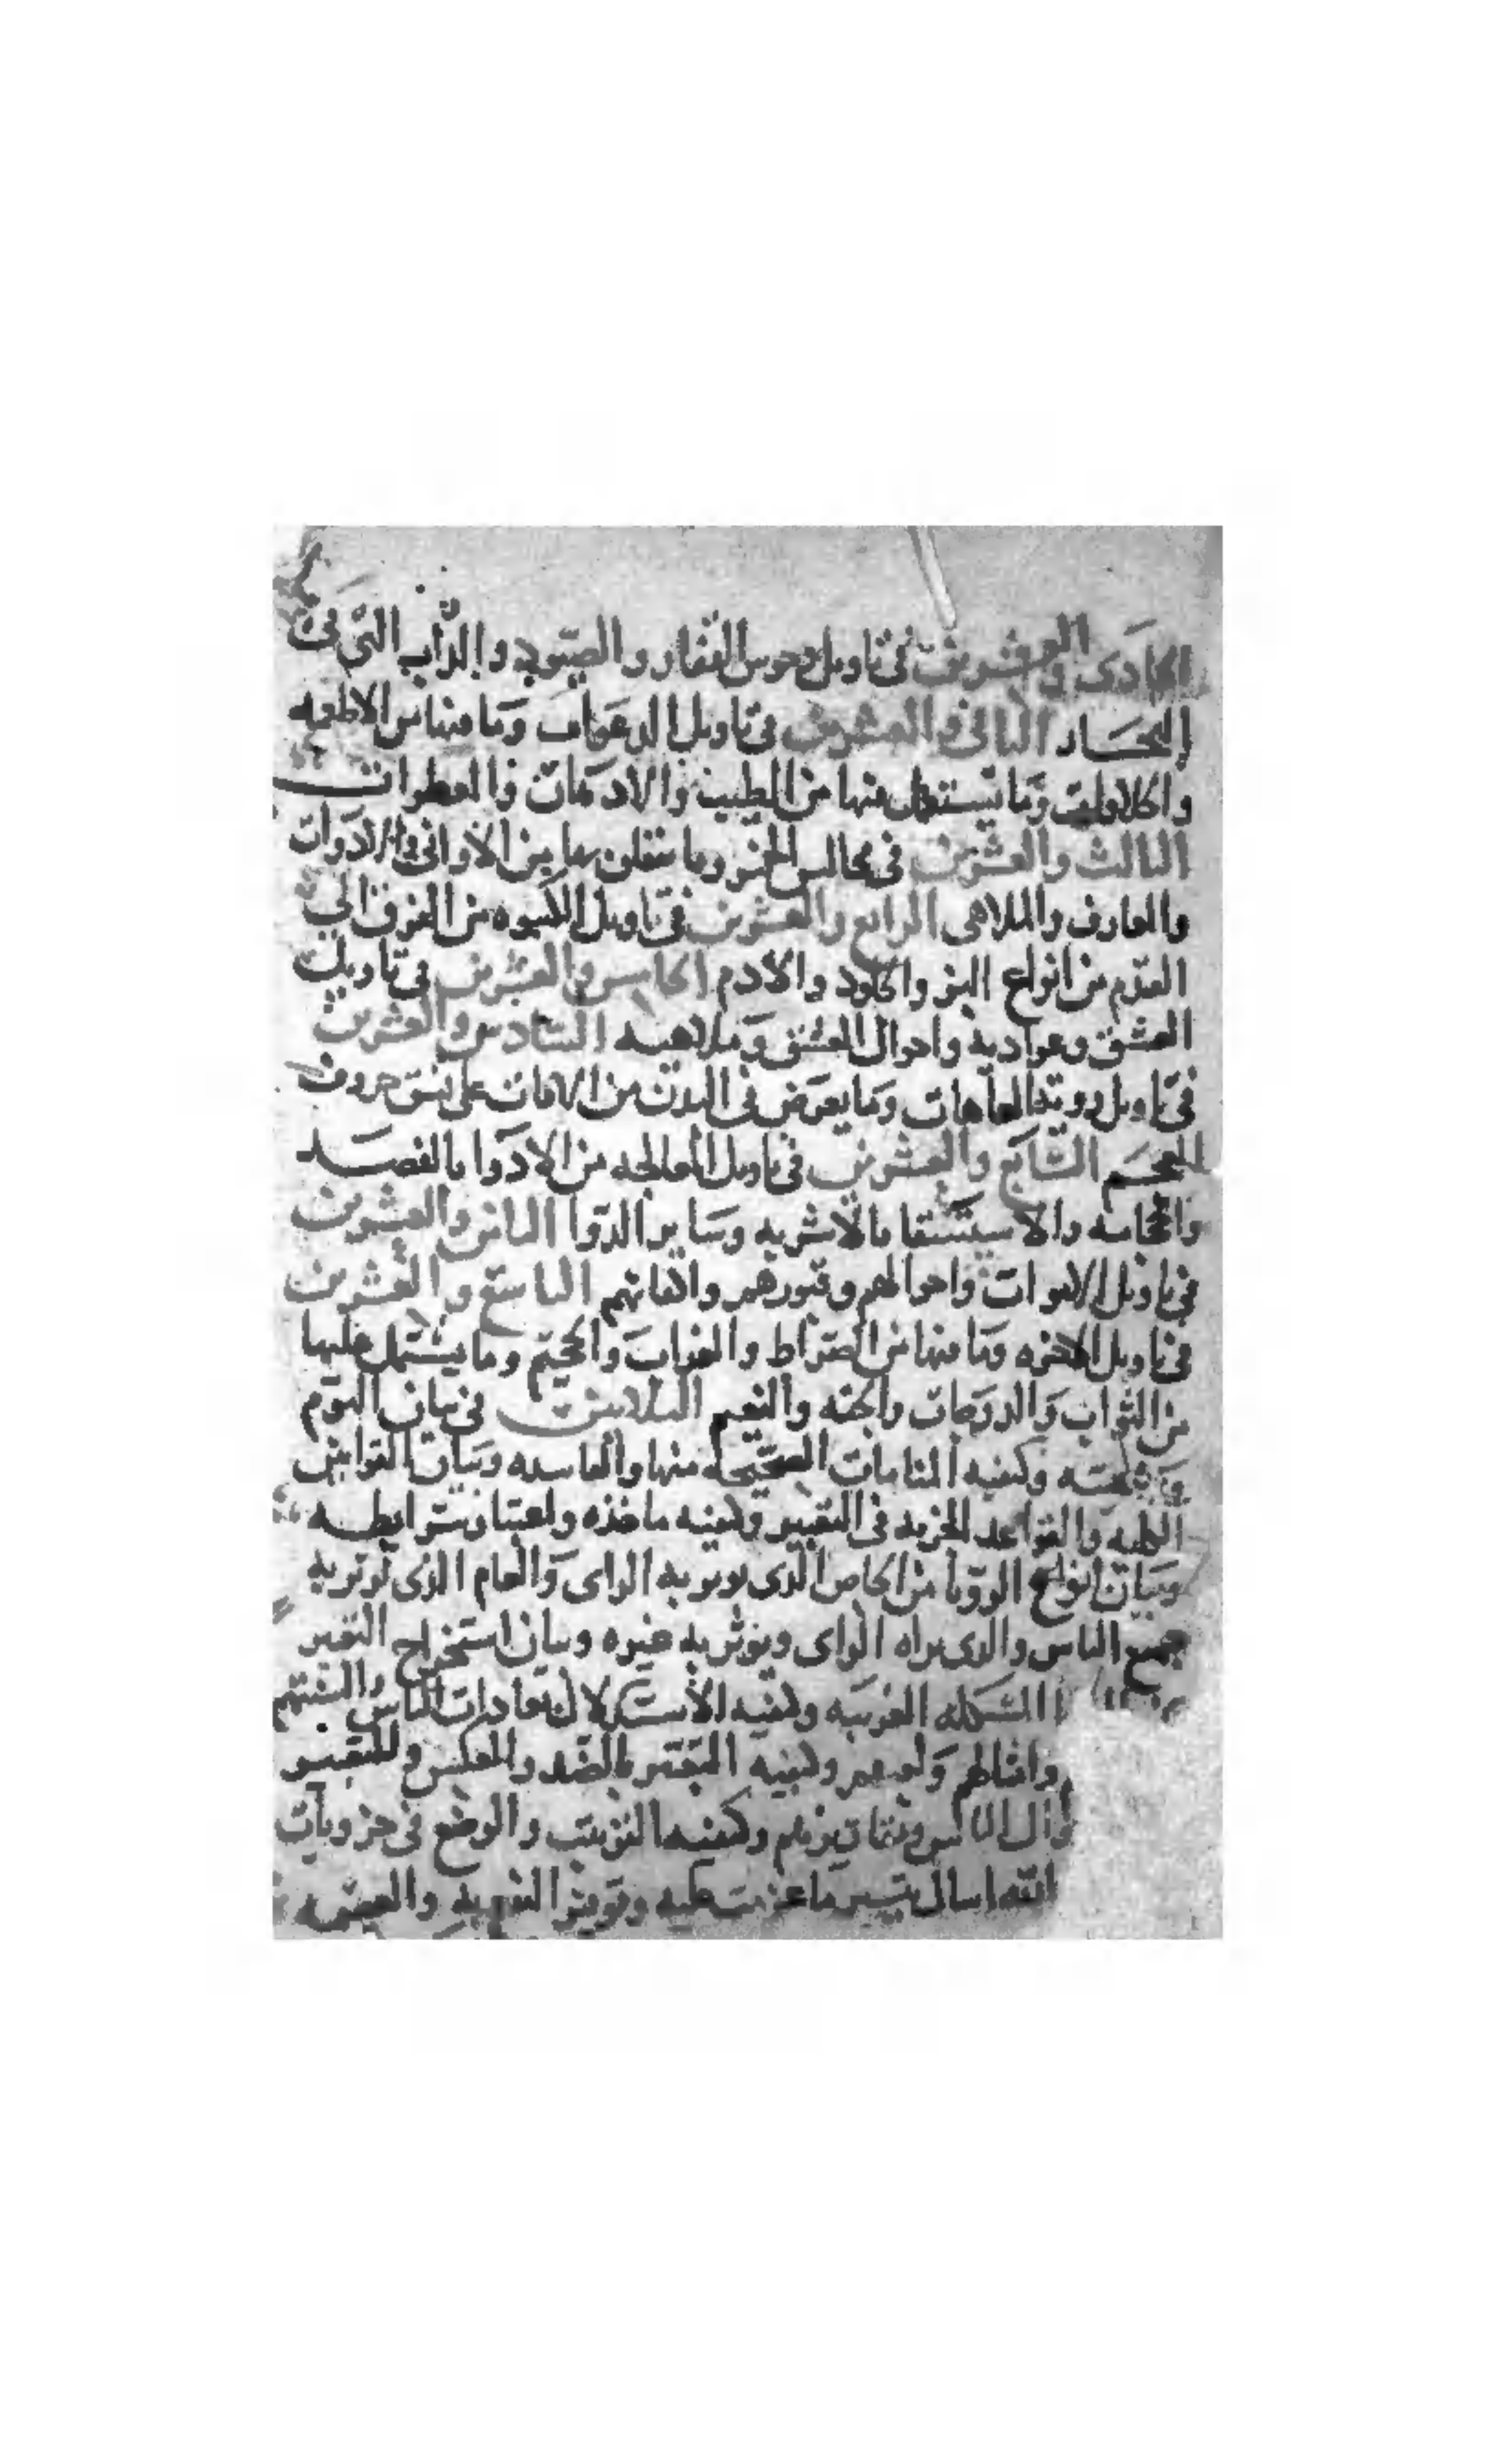 الحادى والعشرون فى تاويل وحوش القفار والصيود والدواب التى فى
البحـار الثانى والعشرون فى تاويل الدعوات وما فيها من الاطعمه
والحلاوات وما يستعمل منها من الطيب والادهان والعطرات
الثالث والعشرون فى مجالس الخمر وما يتعلق بها من الاوانى والادوات
والمعازف والملاهى الرابع والعشرون فى تاويل الكسوه من الفرق الى
القدم من انواع البز والجلود والادم الخامس والعشرون فى تاويل
العشق وعواديه واحوال العشق وملاهيه السادس والعشرون
فى تاويل رويه العاهات وما يعرض فى البدن من الافات على نسق حروف
المعجم السابع والعشرون فى تاويل المعالجه من الادوا بالفصـد
والحجامه والاستشفا بالاشربه وساير الدوا الثامن والعشرون
فى تاويل الاموات واحوالهم وقبورهم واكفانهم التاسع والعشرون
فى تاويل الاخره وما فيها من الصراط والعذاب والجحيم وما يشتمل عليها
من الثواب والدرجات والجنه والنعيم الثلاثون فى بيان النوم
وكيفيه المنامات الصحيحه منها والفاسده وبيان القوانين
الكليه والقواعد الجزيه فى التعبير وكيفيه ماخذه واعتبار شرايطـه
وبيان انواع الرويا من الخاص الذى يوثر به الراى والعام الذى يوثر به
جميع الناس والذى يراه الراى ويوثر به غيره وبيان استخراج التعبير
المشكله الغريبه وكيفيه الاستدلال بعادات الناس والسنتهم
وامثالهم ولغتهم وكيفيه التعبير بالضد والعكس وللتعبير
الناس وكيفيه الترتيب والوضع فى جزويات
الله اسال تيسير ما عزمت عليه والعصمه